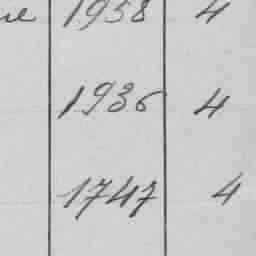 1938 4
1936 4
1747 4